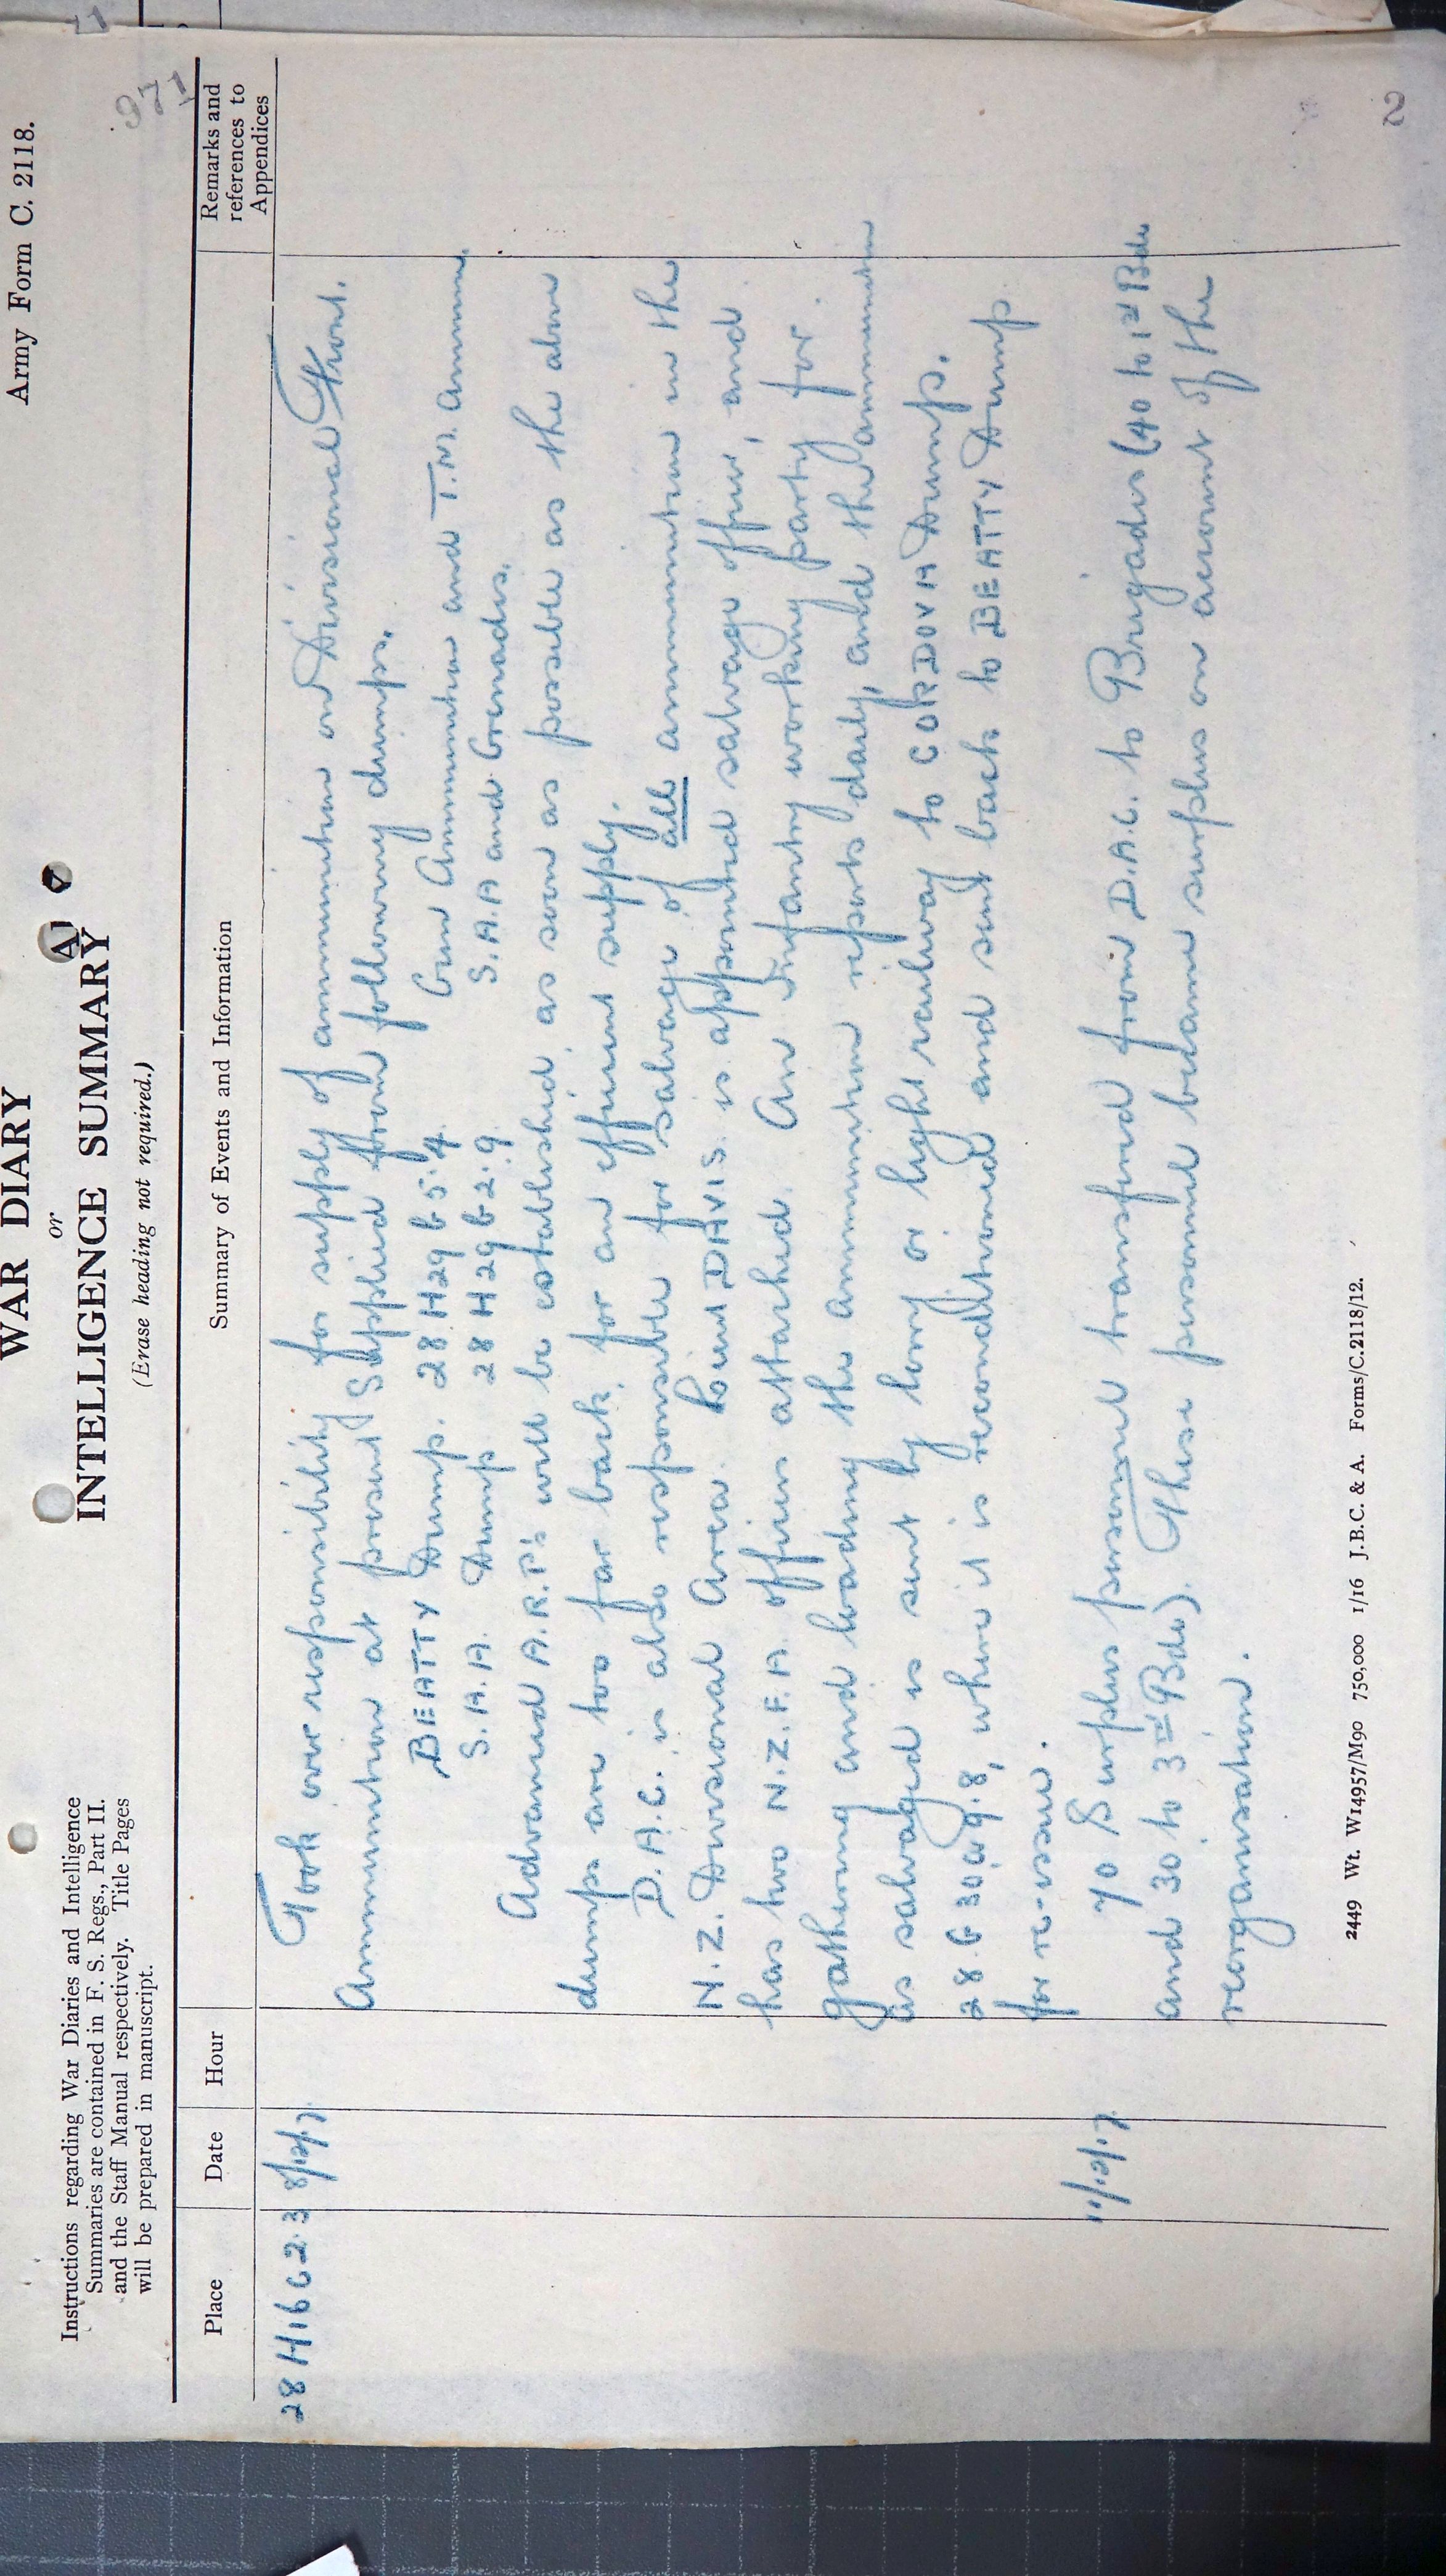 Army Form C. 2118.
WAR DIARY
or
INTELLIGENCE SUMMARY
(Erase heading not required.)
Instructions regarding War Diaries and Intelligence
Summaries are contained in F. S. Regs., Part II.
and the Staff Manual respectively. Title Pages
will be prepared in manuscript.
971
Place Date Hour Summary of Events and Information Remarks and references to Appendices
28 H16 c 2.3 8/12/17 Took over responsibility for supply of ammunition on Divisional Front.
Ammunition at present supplied from following dumps.
BEATTY Dump. 28 H29 b 5.4. Gun Ammunition and T.M. ammn.
S.A.A. Dump 28 H29 b 2.9. S.A.A and Grenades.
Advanced A.R.P's will be established as soon as possible as the above
dumps are too far back for an efficient supply.
D.A.C. is also responsible for salvage of all ammunition in the
N.Z. Divisional Area. Lieut DAVIS is appointed salvage officer, and
has two N.Z.F.A. officers attached. An Infantry working party for
gathering and loading the ammunition reports daily, and the ammunition
as salvaged is sent by lorry or light railway to CORDOVA Dump.
28 G 30 a 9.8, where it is reconditioned and sent back to BEATTY Dump
for re-issue.
11/12/17 70 Surplus personnel transferred from D.A.C. to Brigades (40 to 1st Bde
and 30 to 3rd Bde). These personnel became surplus on account of the
reorganisation.
2449 Wt. W14957/M90 750,000 1/16 J.B.C. & A. Forms/C.2118/12.
2